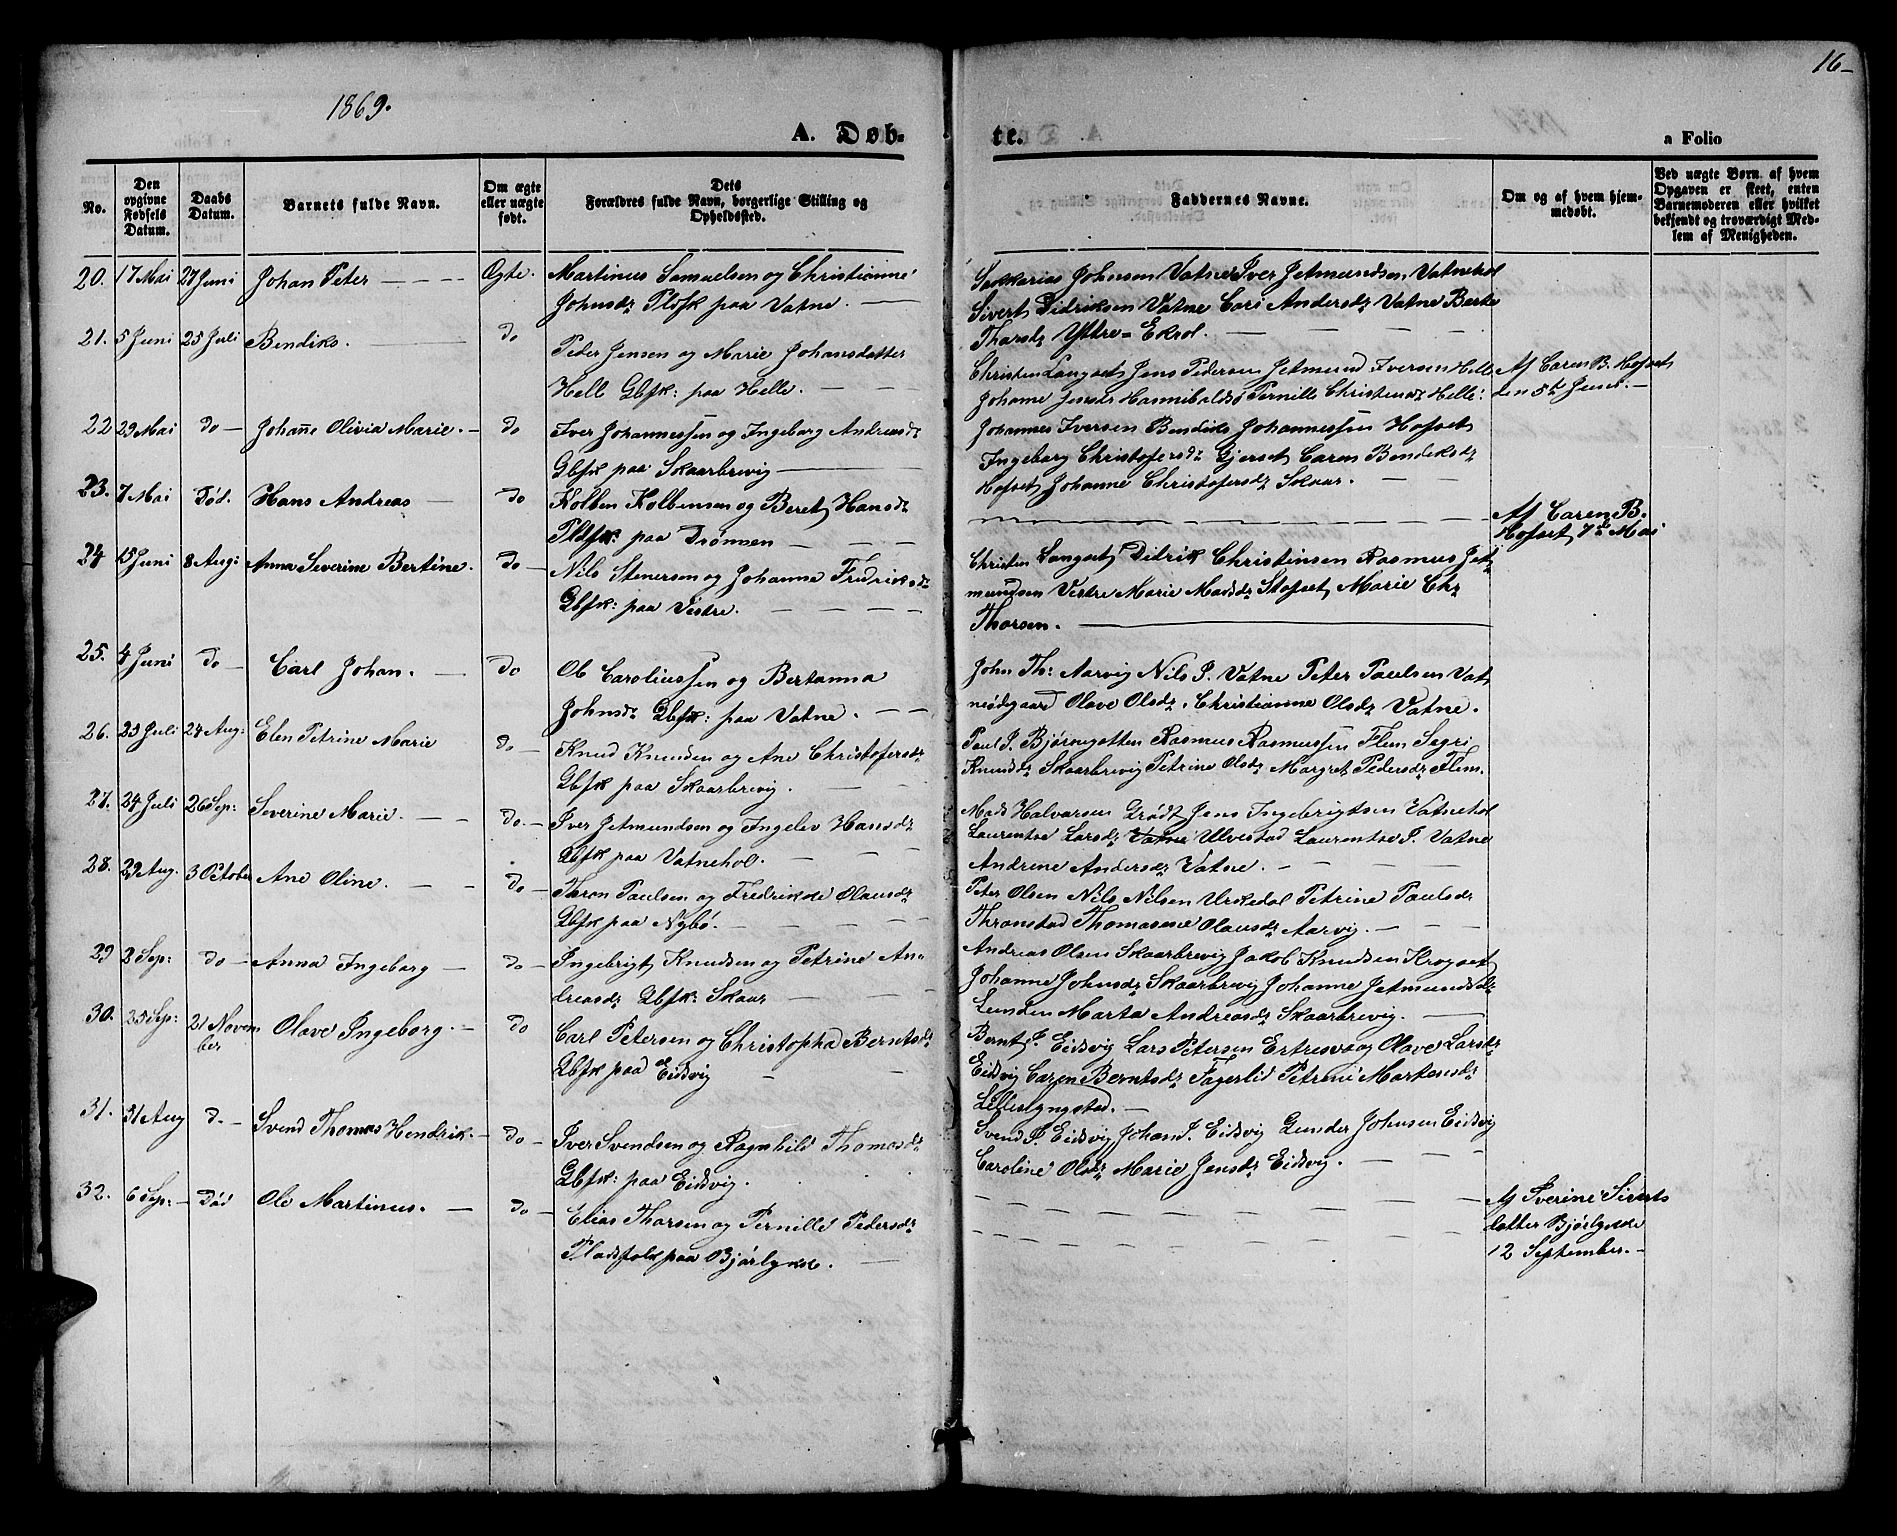 16-
1869.
A. Døb-
te.
a Folio
No.
Den opgivne Fødsels Datum.
Daabs Datum.
Barnets fulde Navn.
Om ægte eller uægte født.
Dets Forældres fulde Navn, borgerlige Stilling og Opholdssted.
Faddernes Navne.
Om og af hvem hjemmedøbt.
Ved uægte Børn, af hvem Opgaven er skeet, enten Barnemoderen eller hvilket bekjendt og troværdigt Medlem af Menigheden.
20. 17 Mai 27 Juni Johan Peter Ægte. Martinus Samuelsen og Christianne
Johnsdr Plsfk paa Vatne.
Sakkarias Johnsen Vatne Iver Jetmundsen Vatnehol
Sivert Didriksen Vatne Cari Andersdr Vatne Berte
Tharsdr Yttre-Eksol.
21. 5 Juni 25 Juli Bendiks. do Peder Jensen og Marie Johansdatter
Hell Gbfk: paa Helle.
Christen Langset Jens Pedersen Jetmund Iversen Helle
Johanne Jensdr Hannibalds Pernille Christensdr Helle:
Af Caren B. Hofset
den 5te Juni.
22 29 Mai do Johañe Olivia Marie. do Iver Johannessen og Ingeborg Andreasdr
Gbfk paa Skaarbrevig
Johannes Iversen Bendiks Johannessen Hofset
Ingeborg Christofersdr Gjerset Caren Bendiksdr
Hofset Johanne Christofersdr Skaar.
23. 7 Mai Død. Hans Andreas do Kolben Kolbensen og Beret Hansdr
Plsfk: paa Drønnen
Af Caren B.
Hofset 7de Mai
24 15 Juni 8 Augi Anna Severine Bertine. do Nils Stenersen og Johanna Fredriksdr
Gbfk: paa Vestre.
Christen Langset Didrik Christensen Rasmus Jet-
mundsen Vestre Marie Madsdr Stofset Marie Chr
Thorsen.
25. 4 Juni do Carl Johan. do Ole Caroliussen og Bertanna
Johnsdr Gbfk: paa Vatne.
John Th: Aarvig Nils J. Vatne Peter Paulsen Vat
neødegaard Olave Olsdr. Christianne Olsdr Vatne.
26. 23 Juli 24 Aug: Elen Petrine Marie do Knud Knudsen og Ane Christofersdr
Gbfk paa Skaarbrevig.
Paul J. Bjørnegotten Rasmus Rasmussen Flem Segri
Knudsdr Skaarbrevig Petrine Olsdr Margret Pedersdr Flem.
27. 24 Juli 26 Sep: Severine Marie. do. Iver Jetmundsen og Ingelev Hansdr
Gbfk paa Vatnehol.
Mads Halvarsen Grødt Jens Ingebrigtsen Vatnehol
Laurentse Larsdr Vatne Ulvestad Laurentse J. Vatne
Andrine Andersdr Vatne.
28. 29 Aug. 3 October Ane Oline. do Thron Paulsen og Fredrikke Olausdr
Gbfk paa Nybø.
Peter Olsen Nils Nilsen Urkedal Petrine Paulsdr
Thronstad Thomasine Olausdr Aarvig.
29 8 Sep: do Anna Ingeborg do Ingebrigt Knudsen og Petrine An-
dreasdr Gbfk: Skaar
Andreas Olsen Skaarbrevig Jakob Knudsen Krogset
Johanne Johnsdr Skaarbrevig Johanne Jetmundsdr
Lunden Marta Andreasdr Skaarbrevig.
30. 25 Sep: 21 Novem
ber Olave Ingeborg. do Carl Petersen og Christopha Berntsdr
Gbfk paa Eidsvig
Bernt J. Eidsvig Lars Petersen Ertresvaag Olave Larsdr
Eidsvig Caren Berntsdr Fagerlid Petrine Martensdr
Lillelyngstad.
31. 31 Aug do Svend Thomas Hendrik. do Iver Svendsen og Ragnhild Thomasdr
Gbfk: paa Eidsvig.
Svend J. Eidsvig Johan J. Eidsvig Gunder Johnsen Eidsvig
Caroline Olsdr Marie Jensdr Eidsvig.
32. 6 Sep: Død Ole Martinus. do Elias Thorsen og Pernille Pedersdr
Pladsfolk paa Bjørlykke.
Af Sverine Siverts
datter Bjørlykke
12 September.